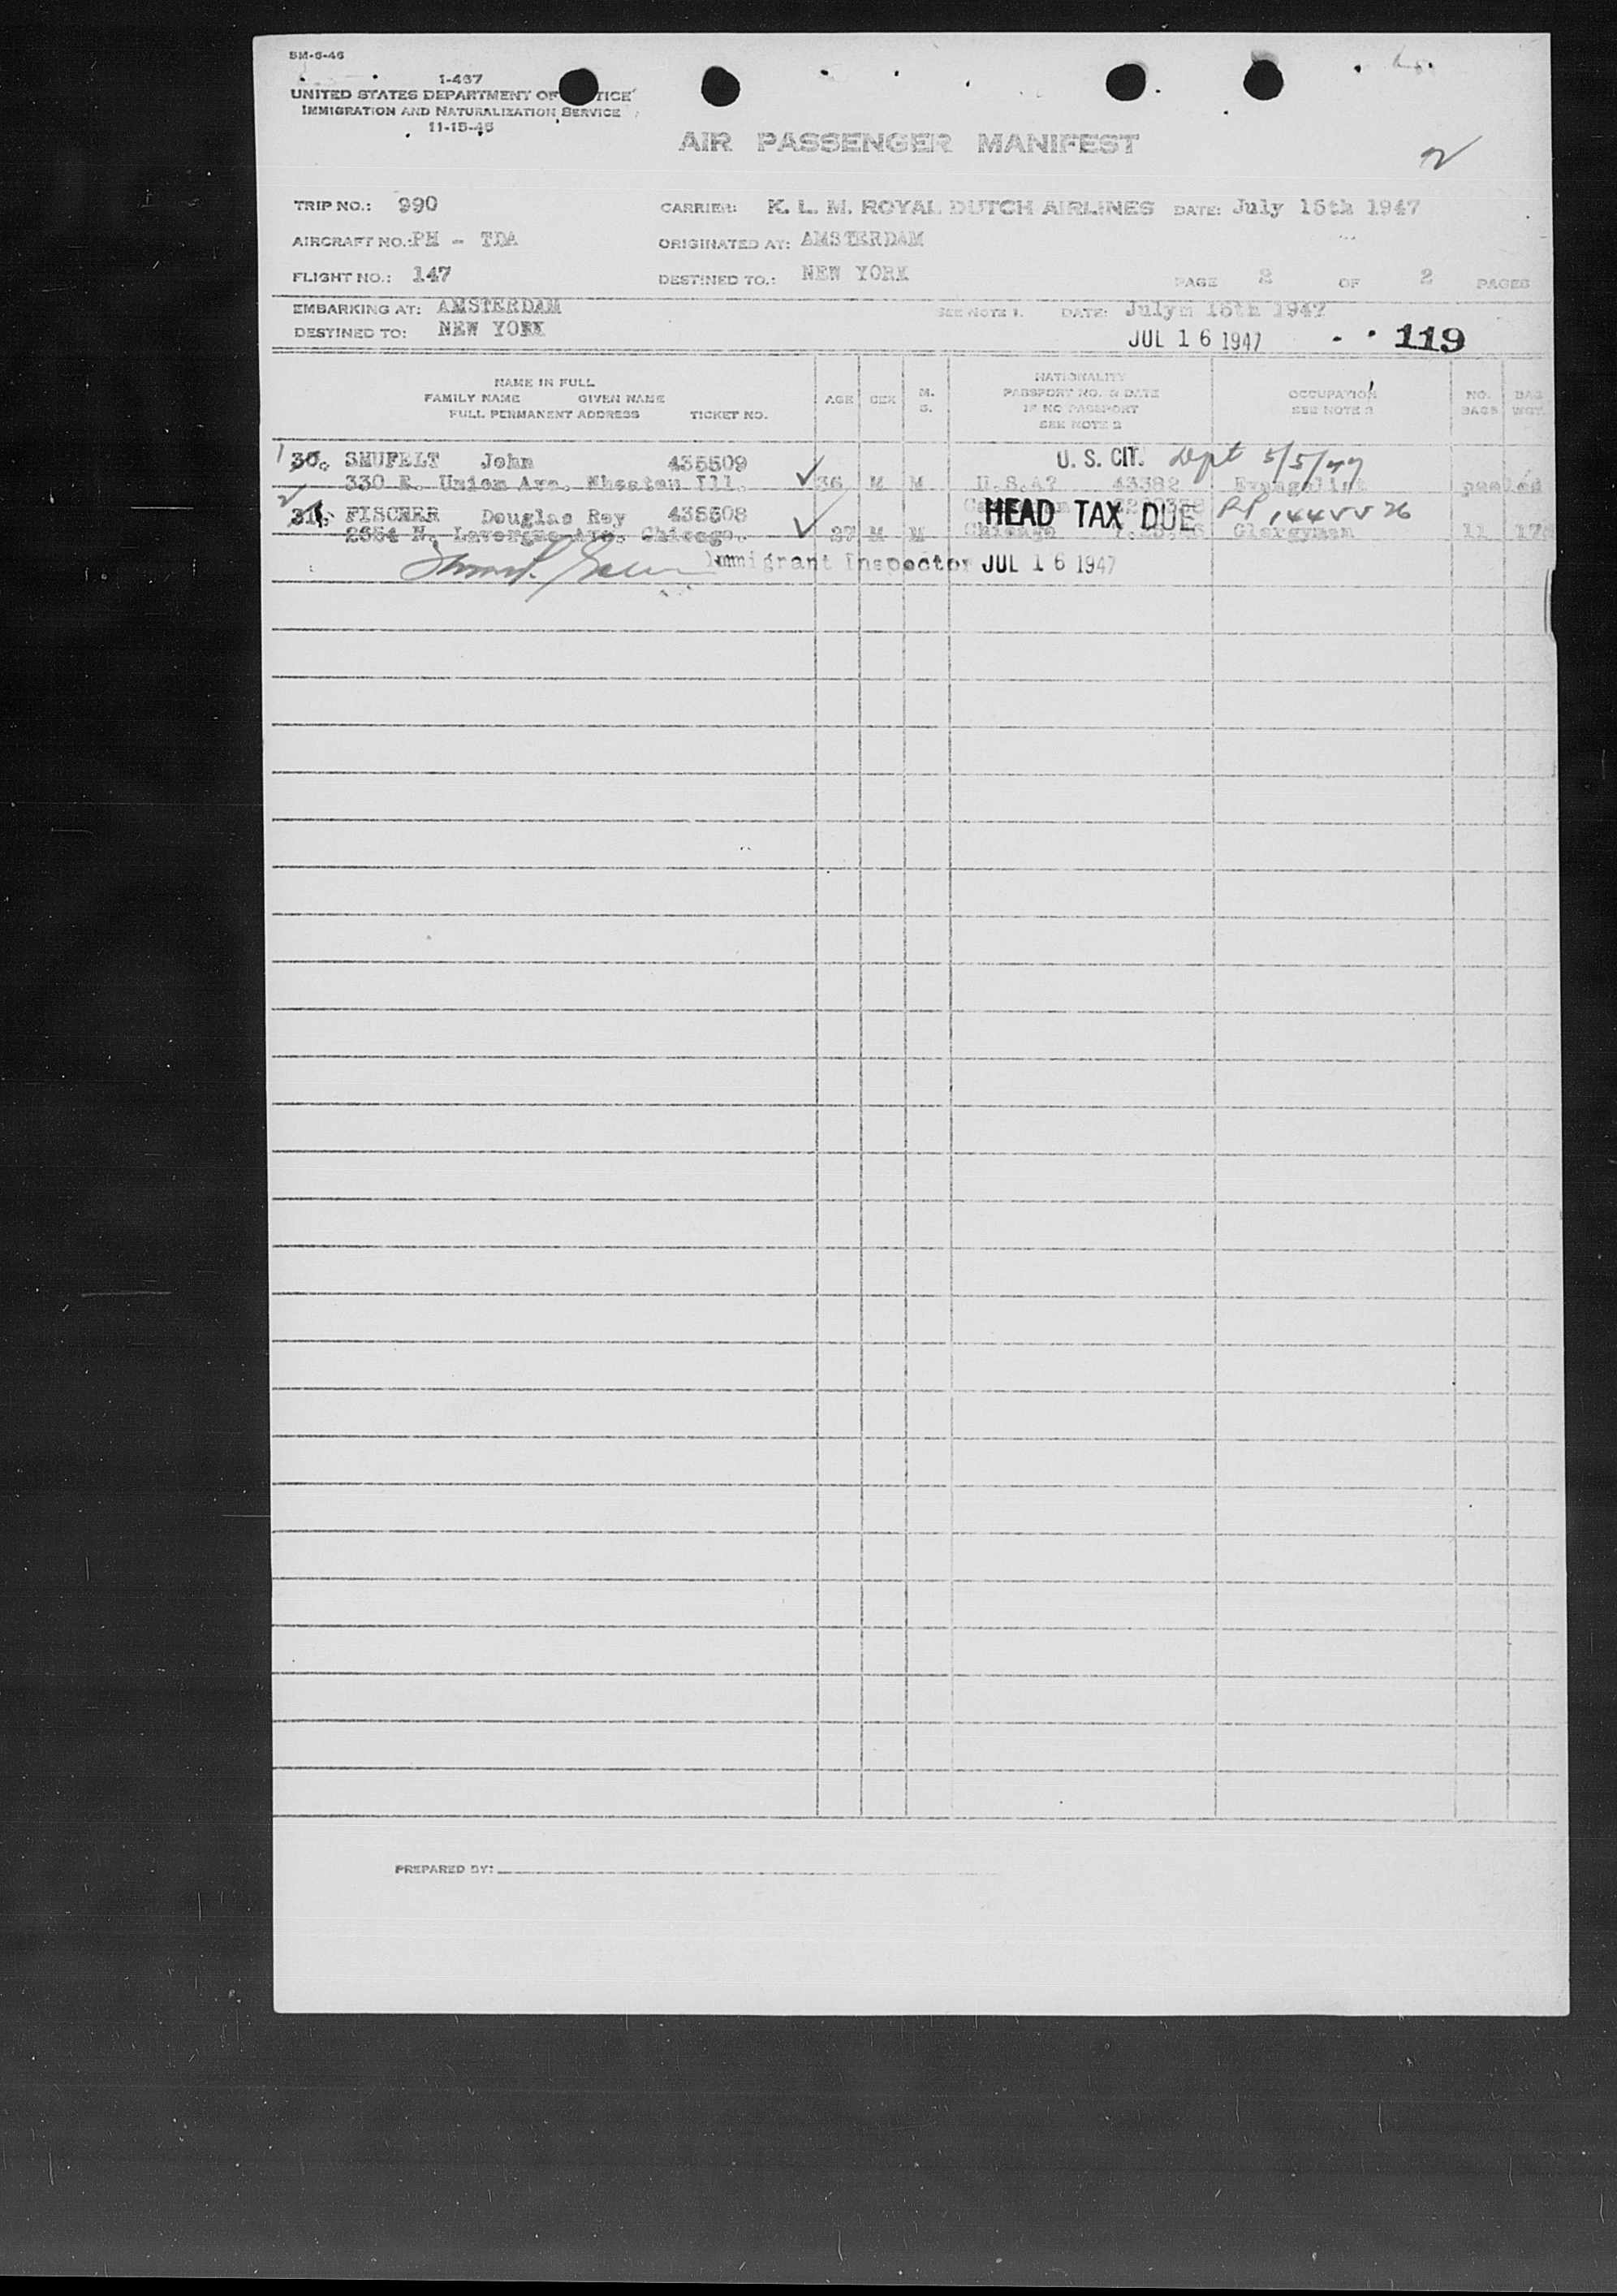 5M-6-46
I-467
UNITED STATES DEPARTMENT OF TICE
IMMIGRATION AND NATURALIZATION SERVICE
11-15-45
AIR PASSENGER MANIFEST
2
TRIP NO.: 990 CARRIER: K. L. M. ROYAL DUTCH AIRLINES DATE: July 15th 1947
AIRCRAFT NO.: PH - TDA ORIGINATED AT: AMSTERDAM
FLIGHT NO.: 147 DESTINED TO.: NEW YORK PAGE 2 OF 2 PAGES
EMBARKING AT: AMSTERDAM SEE NOTE 1. DATE: Julym 15th 1947
DESTINED TO: NEW YORK JUL 16 1947 119
NAME IN FULL
FAMILY NAME GIVEN NAME
FULL PERMANENT ADDRESS TICKET NO.
AGE SEX M. S.
NATIONALITY
PASSPORT NO. & DATE
IF NO PASSPORT
SEE NOTE 2
OCCUPATION
SEE NOTE 3
NO. BAGS BAG WGT.
1 30. SHUFELT John 435509 U. S. CIT. Dept 5/5/47
330 E. Union Ave. Wheaton Ill. 36 M M U.S.A? 43382 Evangelist pooled
2 31. FISCHER Douglas Roy 435508 HEAD TAX DUE
N. Ave. Chicago. 27 M M Chicago Clergyman 11
Immigrant Inspector JUL 16 1947
PREPARED BY: